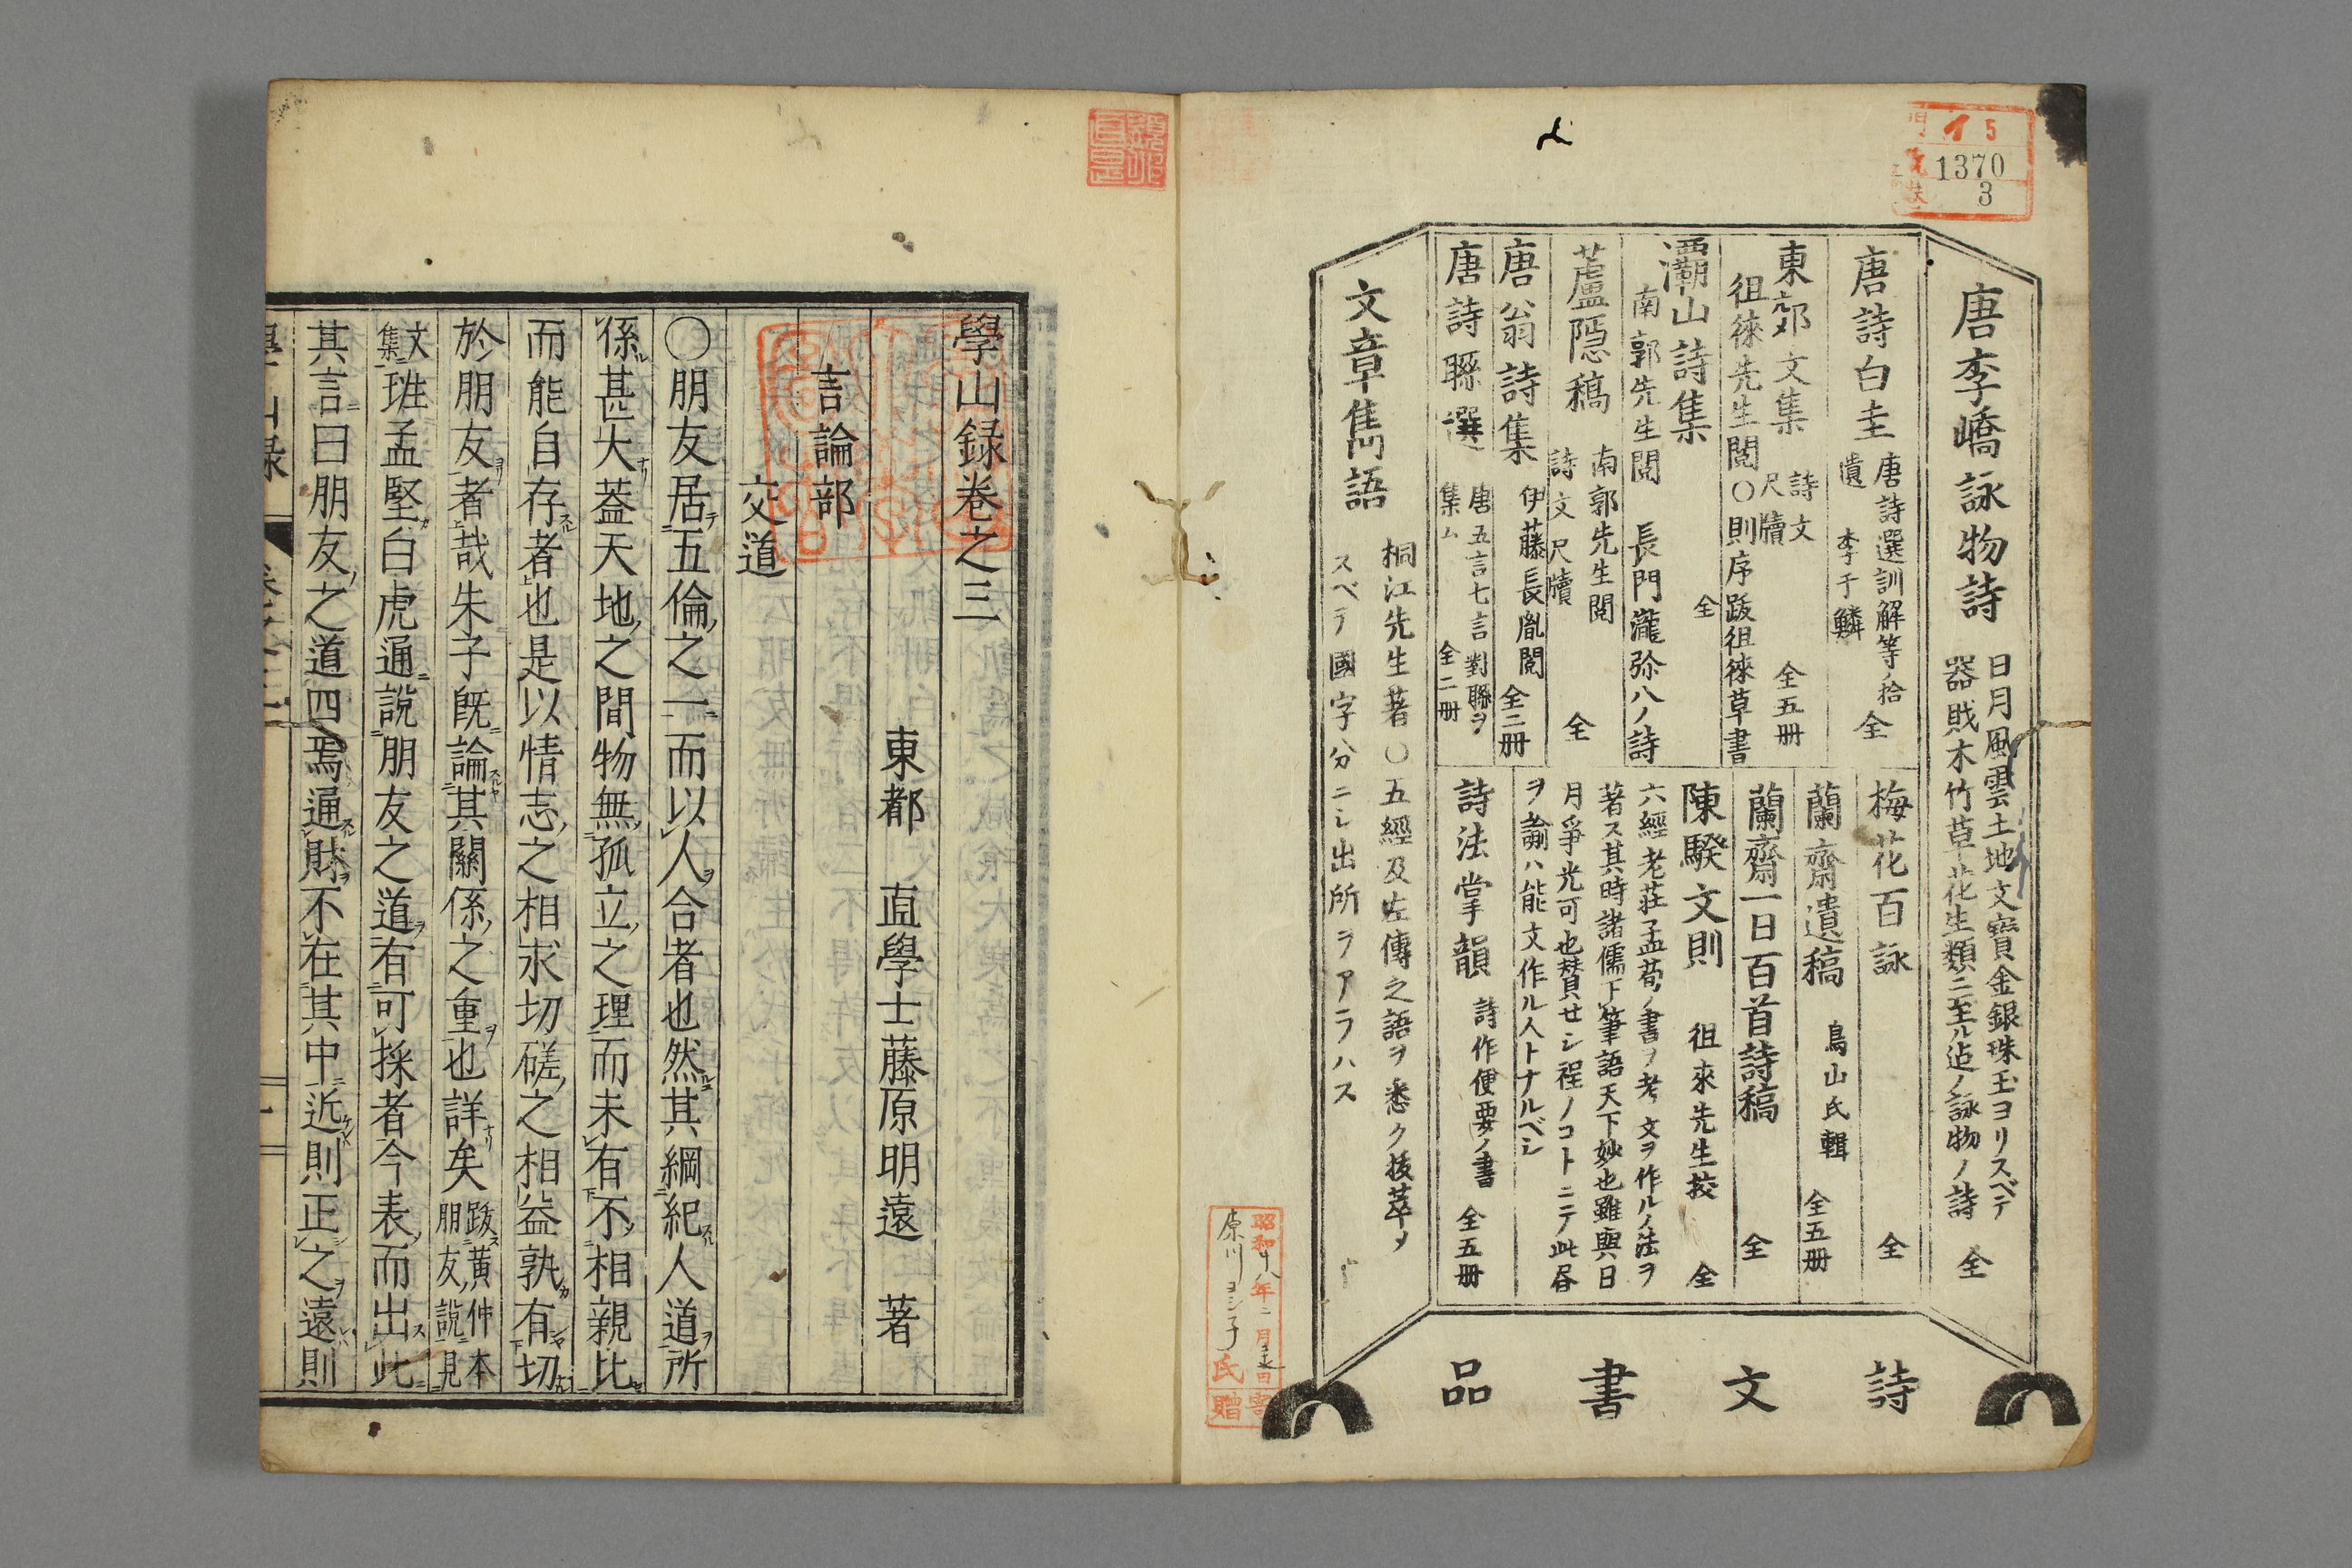 唐李嶠詠物詩
日月風雲土地文寶金銀珠玉ヨリスベテ
器賎木竹草花生類ニ至ル迠ノ詠物ノ詩
全
唐詩白圭
唐詩選訓解等ノ拾
遺 李于鱗
全
東郊文集
詩文
尺牘
全五冊
徂徠先生閲〇則序跋徂徠草書
灞山詩集
全
南郭先生閲 長門瀧弥八ノ詩
蘆隠稿
南郭先生閲
詩文尺牘
全
唐翁詩集
伊藤長胤閲
全二冊
唐詩聯選
唐五言七言對聯ヲ
集ム
全二冊
梅花百詠
全
蘭齋遺稿
鳥山氏輯
全五冊
蘭齋一日百首詩稿
全
陳騤文則
徂來先生挍
全
六經老莊孟荀ノ書ヲ考文ヲ作ルノ法ヲ
著ス其時諸儒下筆語天下妙也雖與日
月爭光可也賛セシ程ノコトニテ此昏
ヲ諭ハ能文作ル人トナルベシ
詩法掌韻
詩作便要ノ書
全五冊
文章雋語
桐江先生著〇五經及左傳之語ヲ悉ク抜萃メ
スベテ國字分ニシ出所ヲアラハス
詩文書品
5
1370
3
昭和十八年二月
原川ヨシ子氏
贈
學山録卷之三
東都 直學士藤原明遠 著
言論部
交道
〇朋友居五倫之一而以人合者也然其綱紀人道所
係甚大葢天地之間物無孤立之理而未有不相親比
而能自存者也是以情志之相求切磋之相益孰有切
於朋友者哉朱子既論其關係之重也詳矣跋黃仲本
朋友説見
文
集班孟堅白虎通說朋友之道有可採者今表而出此
其言曰朋友之道四焉通財不在其中近則正之遠則
學山録